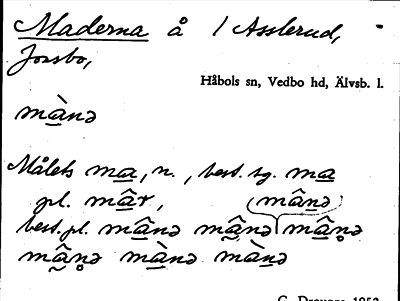 Maderna å / Asslerud,
Jonsbo,
Håbols sn, Vedbo hd, Älvsb. l.
mànə
Målets ma, n., best. sg. ma
pl. mâr, (mânə)
best. pl. mânə mânə mân̥ə
mân̥ə mànə mànə